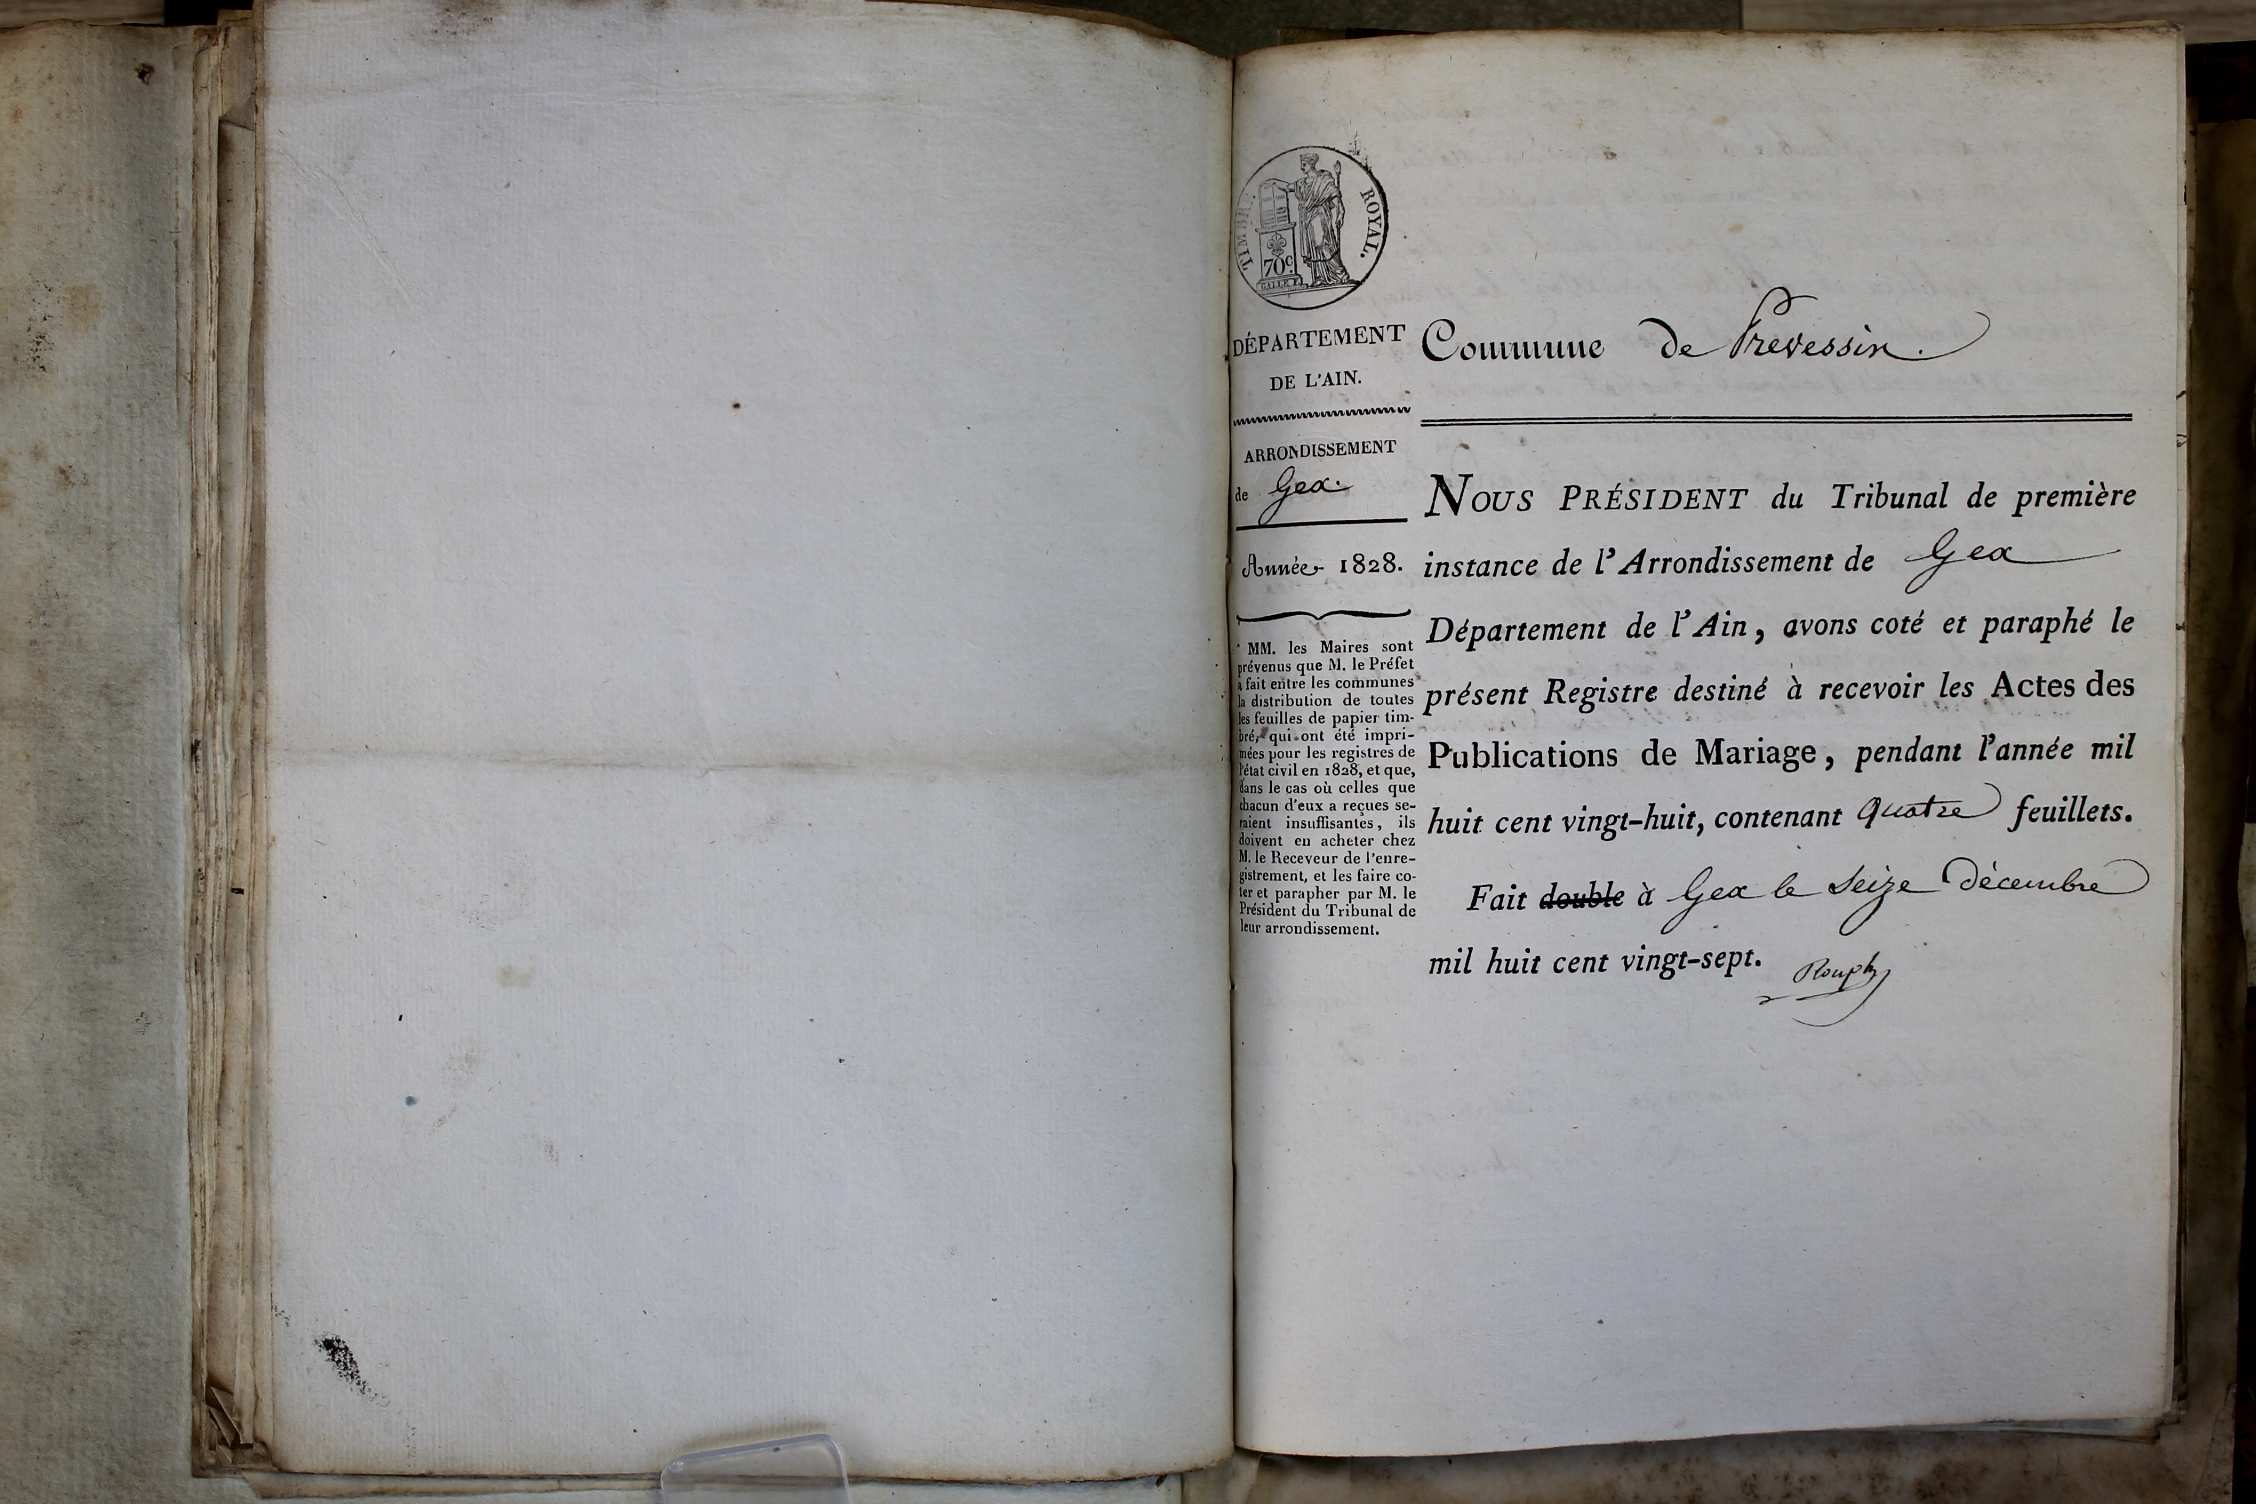 TIMBRE ROYAL.
70c.
DÉPARTEMENT
DE L'AIN.
ARRONDISSEMENT
de Gex.
Année 1828.
MM. les Maires sont
prévenus que M. le Préfet
a fait entre les communes
la distribution de toutes
les feuilles de papier tim-
bré, qui ont été impri-
mées pour les registres de
l'état civil en 1828, et que,
dans le cas où celles que
chacun d'eux a reçues se-
raient insuffisantes, ils
doivent en acheter chez
M. le Receveur de l'enre-
gistrement, et les faire co-
ter et parapher par M. le
Président du Tribunal de
leur arrondissement.
Commune de Prevessin.
NOUS PRÉSIDENT du Tribunal de première
instance de l'Arrondissement de Gex
Département de l'Ain, avons coté et paraphé le
présent Registre destiné à recevoir les Actes des
Publications de Mariage, pendant l'année mil
huit cent vingt-huit, contenant quatre feuillets.
Fait double à Gex le seize décembre
mil huit cent vingt-sept.